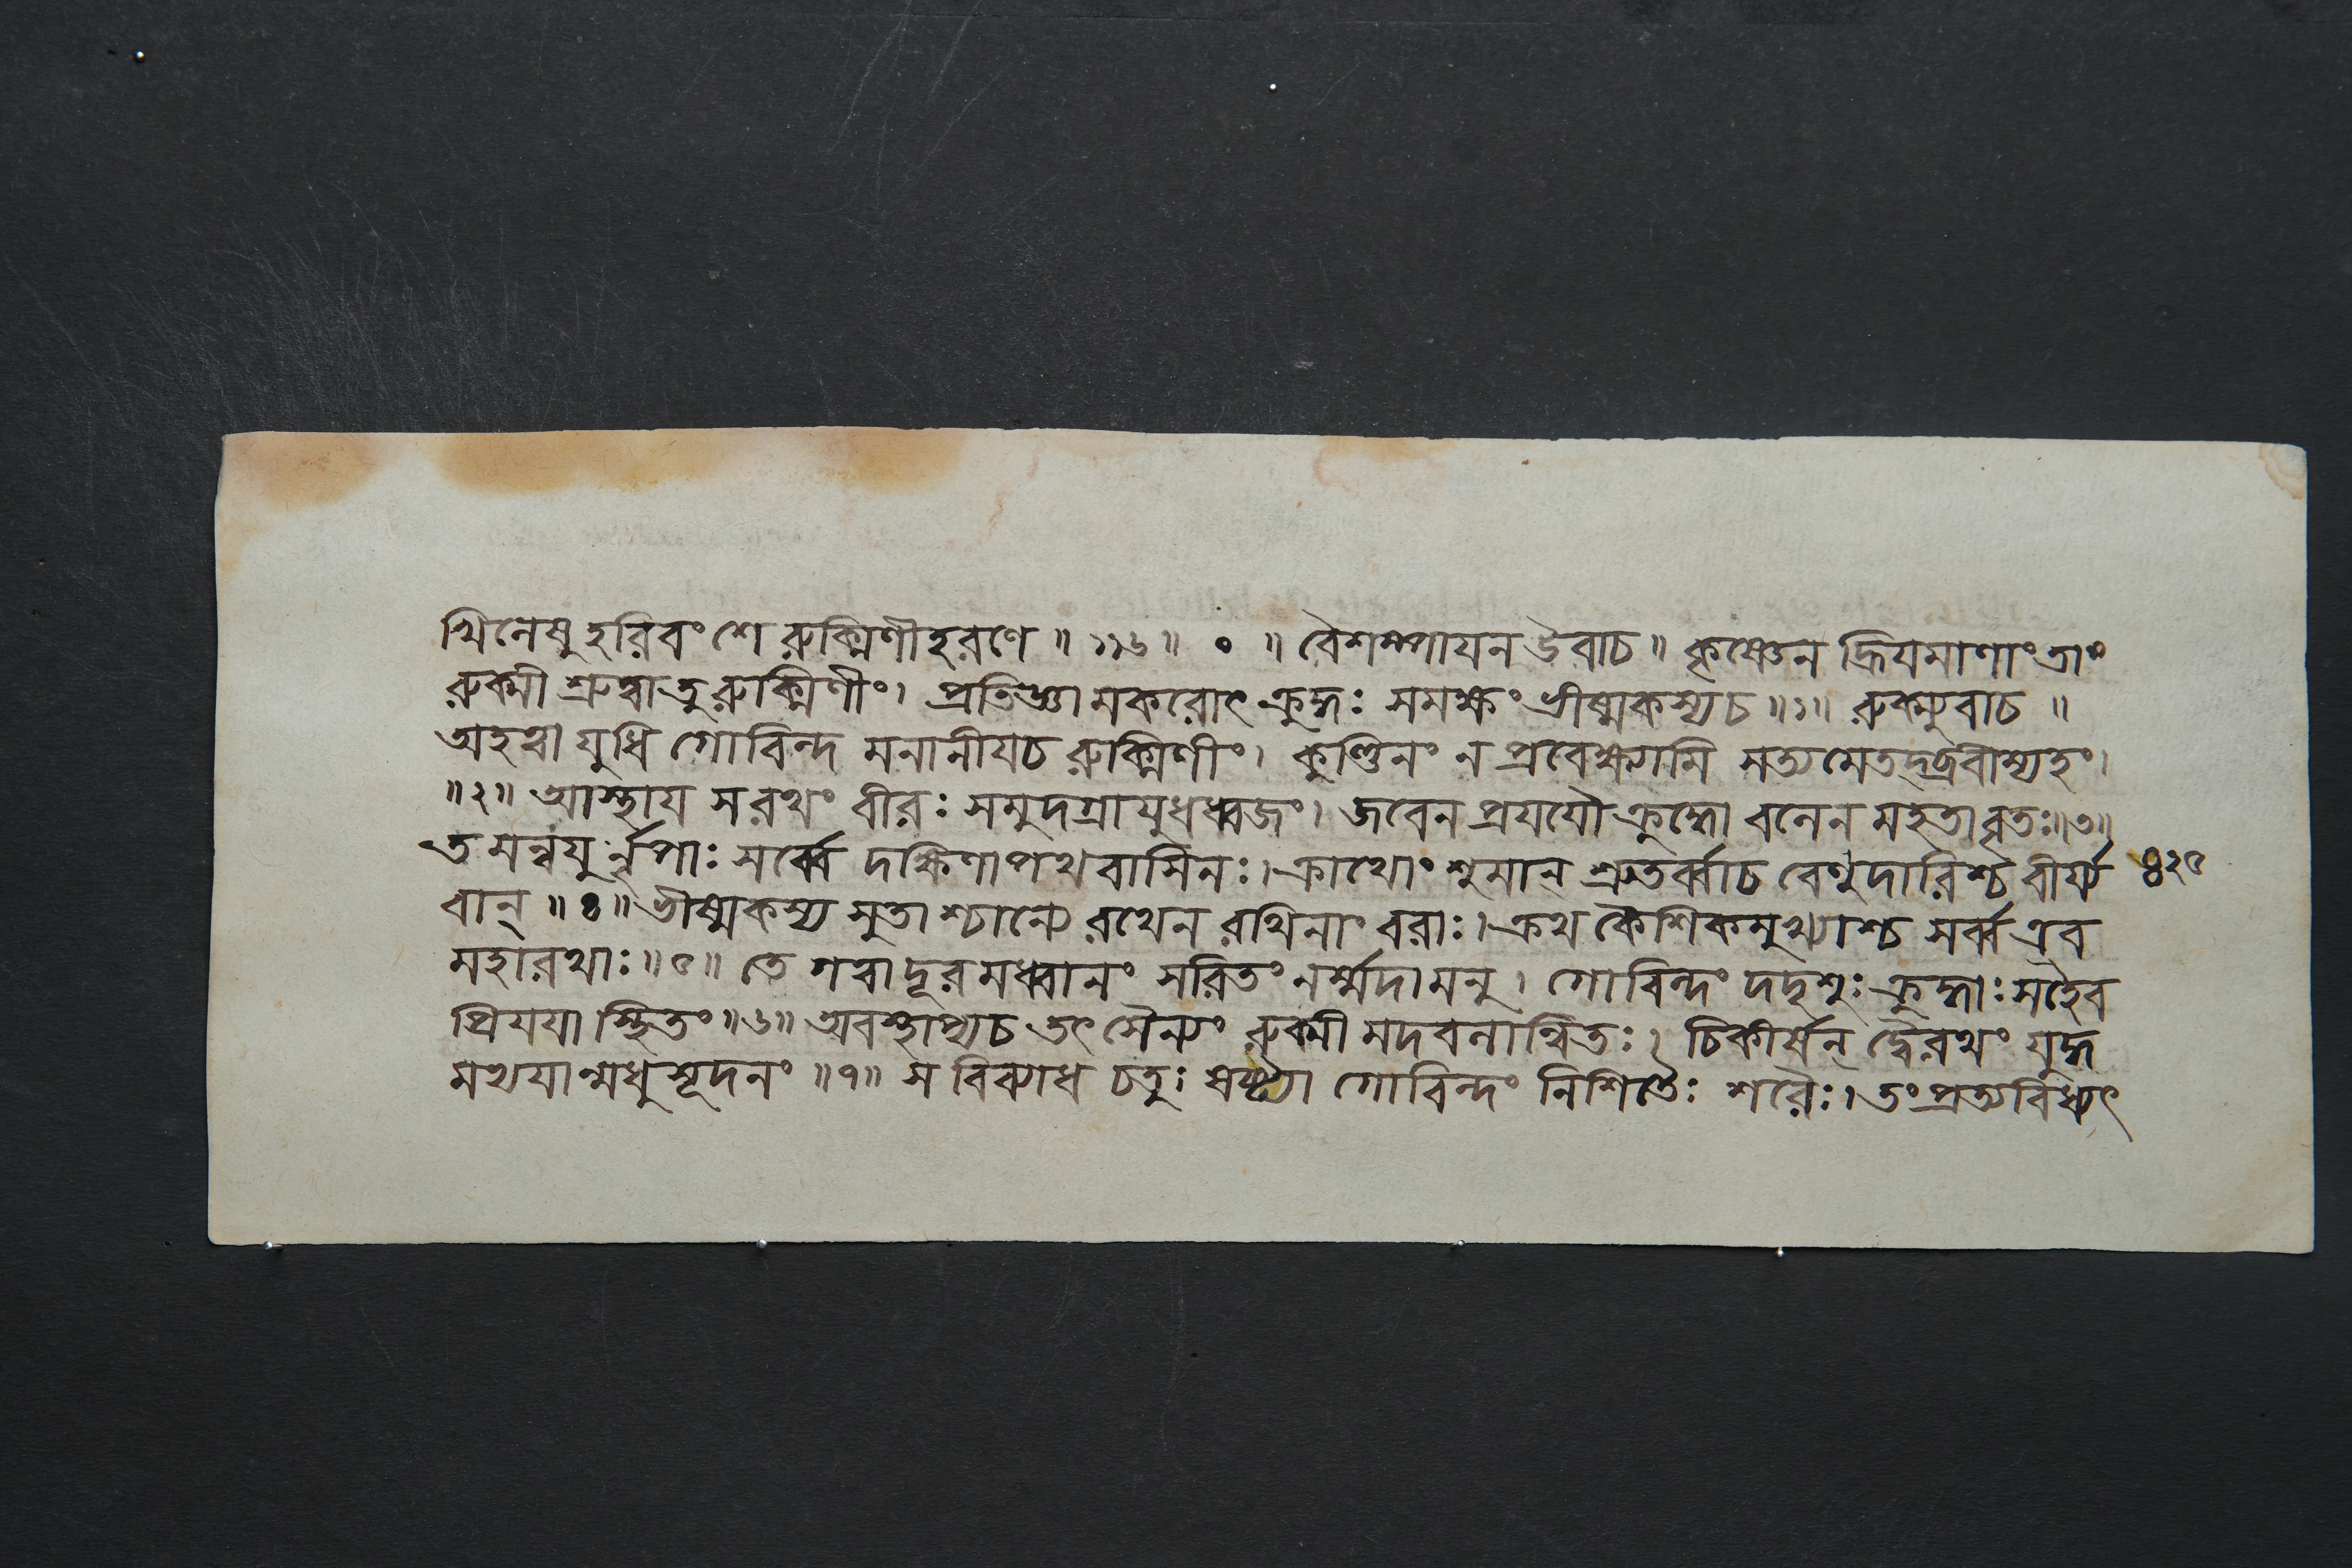 খিলেষু হরিবংশে রুক্মিণীহরণে ॥ ১১৬॥ ० ॥ বৈশম্পায়ন উবাচ ॥ কৃষ্ণেন হ্রিয়মাণাং তাং
রুক্মী শ্রুত্বা তু রুক্মিণীং। প্রতিজ্ঞামকরোৎ ক্রুদ্ধঃ সমক্ষং ভীষ্মকস্য চ ॥১॥ রুক্ম্যুবাচ ॥
অহত্বা যুধি গোবিন্দ মনানীয়চ রুক্মিণীং। কুণ্ডিনং ন প্রবেক্ষ্যামি সত্যমেতদ্ব্রবীম্যহং।
॥২॥ আস্থায় স রথং বীরঃ সমুদগ্রায়ুধধ্বজং। জবেন প্রযযৌ ক্রুদ্ধো বলেন মহতা বৃতঃ॥৩॥
তমন্বযুর্নৃপাঃ সর্ব্বে দক্ষিণাপথবাসিনঃ। ক্রাথোংশুমান্ শ্রুতর্ব্বাচ বেণুদারিশ্চ বীর্য্য ৪২৫
বান্ ॥৪॥ ভীষ্মকস্য সুতাশ্চান্যে রথেন রথিনাং বরাঃ। ক্রথকৈশিকমুখ্যাশ্চ সর্ব্ব এব
মহারথাঃ॥৫॥ তে গত্বা দূরমধ্বানং সরিতং নর্ম্মদামনু। গোবিন্দং দদৃশুঃ ক্রুদ্ধাঃ সহৈব
প্রিযয়া স্থিতং॥৬॥ অবস্থাপ্য চ তৎ সৈন্যং রুক্মী মদবলান্বিতঃ। চিকীর্ষন্ দ্বৈরথং যুদ্ধ
মভ্যয়ান্মধুসূদনং ॥৭॥ স বিব্যাধ চতুঃষষ্ট্যা গোবিন্দং নিশিতৈঃ শরৈঃ। তং প্রত্যবিধ্যৎ